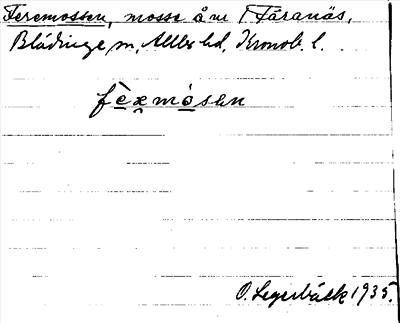 Feremossen, mosse å nr 1 Färanäs,
Blädinge sn, Allbo hd, Kronob. l.
fèremósen
O. Legerbäck 1935.